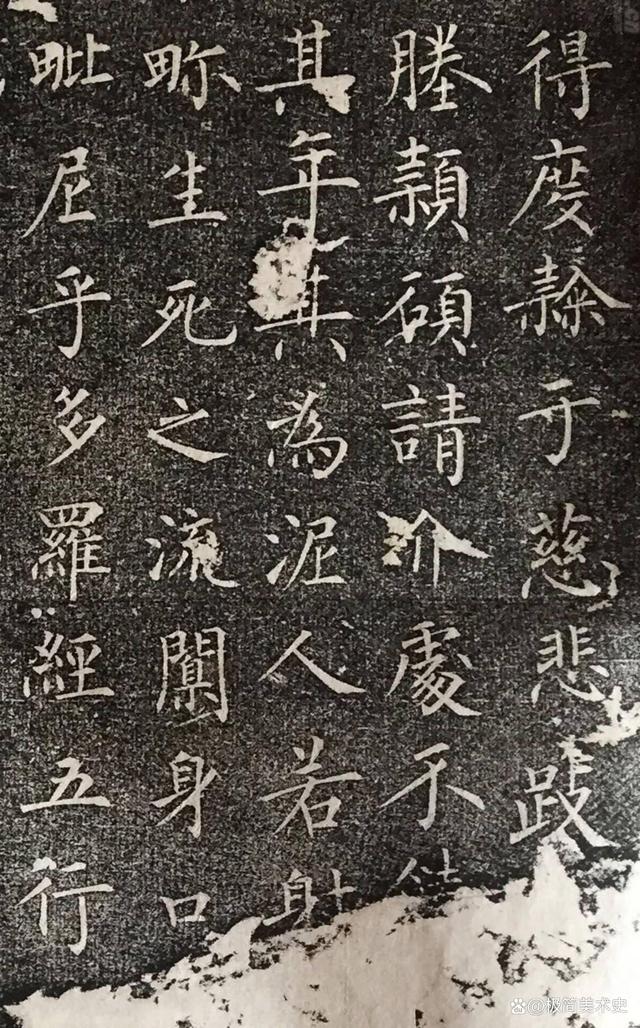 得度于慈悲
碩請介處不
其年其為泥人若
生死之流身口
毗尼乎多羅經五行
@极简美术史